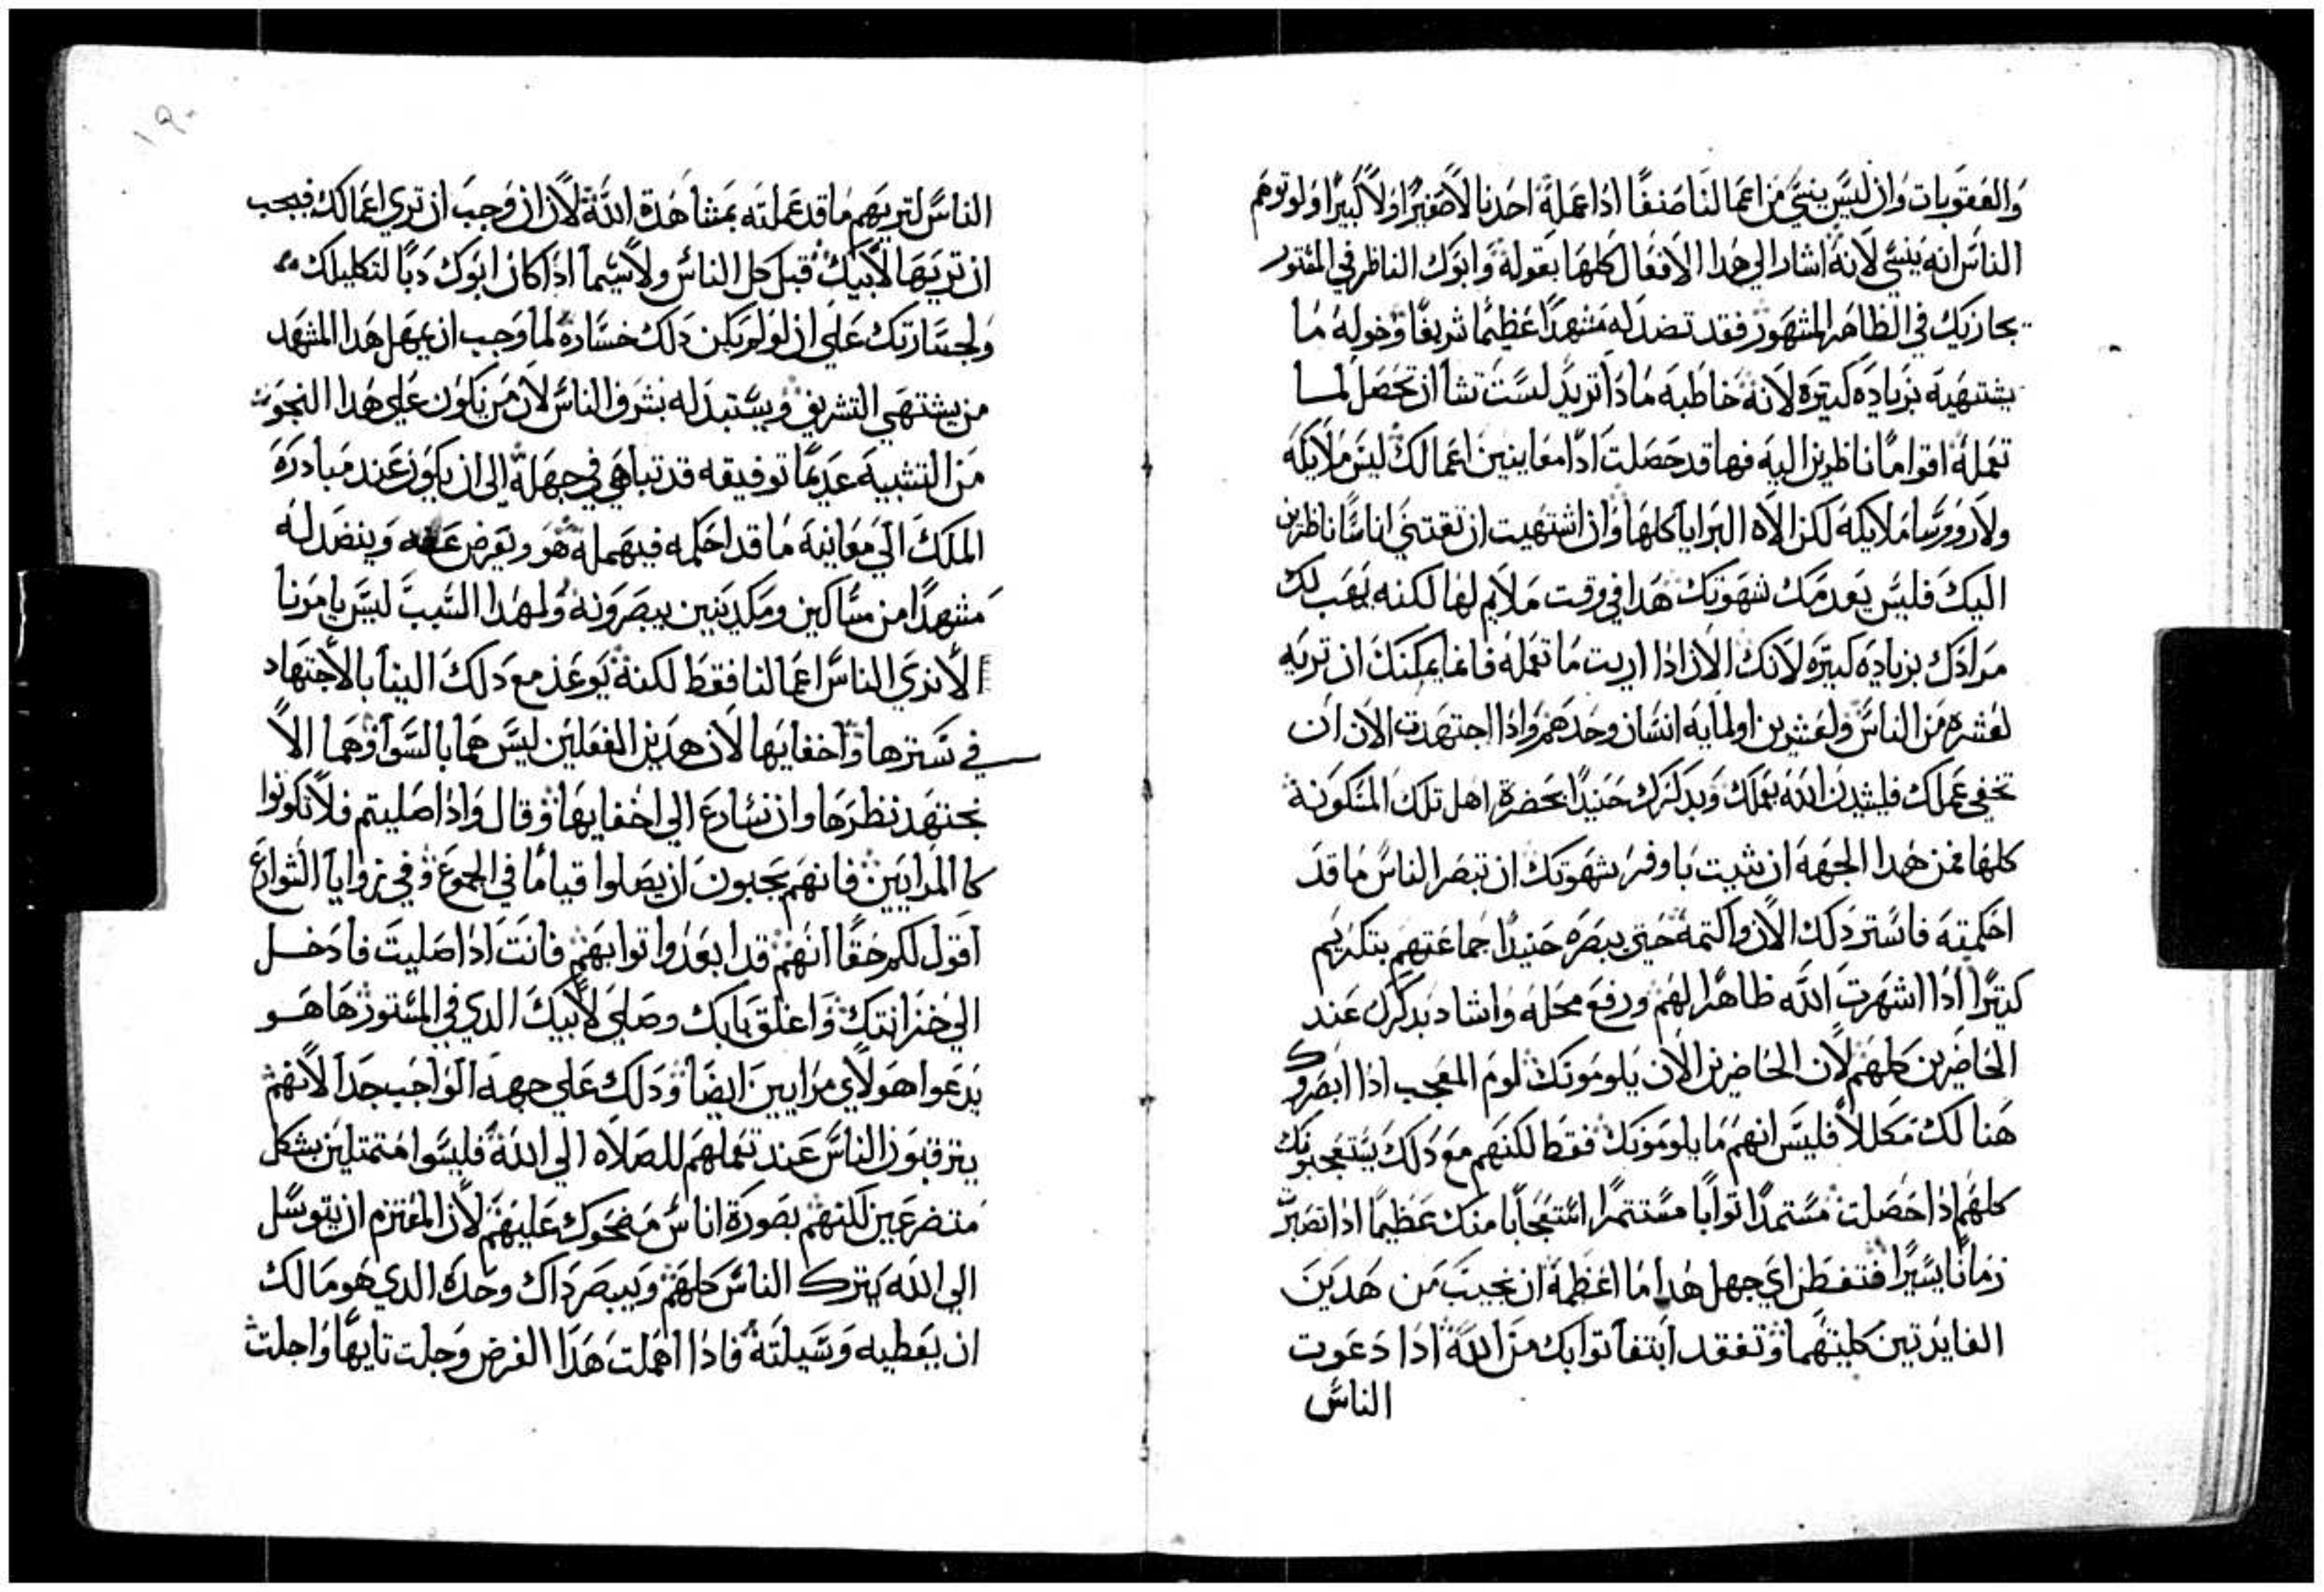 والعقوبات وان ليس ينسي من اعمالنا صنفا اذا عمله احدنا لا صغيرا ولا كبيرا ولو توهم
الناس انه ينسي لانه اشار الي هدا الافعال كلها بقوله وابوك الناظر في المستور
يجازيك في الظاهر المشهور فقد نضد له مشهدا عظيما شريفا وخوله ما
يشتهيه بزياده كبيره لانه خاطبه مادا تريد لست تشا ان تحصل لما
تعمله اقواما ناظرين اليه فها قد حصلت ادا معاينين اعمالك ليس ملايكه
ولا رووسا ملايكه لكن الاه البرايا كلها وان اشتهيت ان تقتني اناسا ناظرين
اليك فليس يعدمك شهوتك هدا في وقت ملايم لها لكنه يهب لك
مرادك بزياده كبيره لانك الان ادا اريت ما تعمله فانما يمكنك ان تريه
لعشره من الناس ولعشرين او لمايه انسان وحدهم واذا اجتهدت الان ان
تخفي عملك فليشيدن الله بعملك وبدكرك حنيدا بحضرة اهل تلك المسكونة
كلها فمن هدا الجهه ان شيت باوفر شهوتك ان تبصر الناس ما قد
احكمته فاستر دلك الان واكتمه حتي يبصره حنيدا جماعتهم بتكريم
كتيرا ادا اشهرت الله ظاهرا لهم ورفع محله واشاد بدكرك عند
الحاضرين كلهم لان الحاضرين الان يلومونك لوم المعجب ادا ابصروك
هنالك مكللا فليس انهم ما يلومونك فقط لكنهم مع دلك يستعجبونك
كلهم اذا حصلت مستمدا توابا مستتمرا استعجابا منك عظيما اذا تصبرت
زمانا يسيرا فتفطن اي جهل هدا ما اعظمه ان نخيب من هدين
الفايدتين كليتهما وتفقد ابتغا توابك من الله ادا دعوت
الناس
١٩٠
الناس لتريهم ما قد عملته بمشاهدة الله لان ان وجب ان تري اعمالك فيجب
ان تريها لابيك قبل كل الناس ولا سيما اذا كان ابوك ربا لتكليلك
ولجسارتك علي ان لو لم يكن دلك خساره لما وجب ان يهمل هدا المشهد
من يشتهي التشريف ويستبدله بشرف الناس لان من يكون علي هدا النحو
من التشبيه عديما توفيقه قد تباهي في جهله الي ان يكون عند مبادره
الملك الي معاينة ما قد احكمه فيهمله هو ويعرض عنه وينضد له
مشهدا من مساكين ومكديين يبصرونه ولهدا السبب ليس يامرنا
الا نري الناس اعمالنا فقط لكنه يوعز مع دلك الينا بالاجتهاد
في سترها واخفايها لان هدين الفعلين ليس هما بالسوا وهما الا
نجتهد نظرها وان نسارع الي اخفايها وقال واذا صليتم فلا تكونوا
كالمرايين فانهم يحبون ان يصلوا قياما في الجموع وفي زوايا الشوارع
اقول لكم حقا انهم قد ابعدوا توابهم فانت اذا صليت فادخل
الي خزانتك واغلق بابك وصلي لابيك الدي في المستور ها هو
يدعوا هولاي مرايين ايضا ودلك علي جهه الواجب جدا لانهم
يترقبون الناس عند تعملهم للصلاه الي الله فليسوا متمتلين بشكل
متضرعين لكنهم بصورة اناس مضحوك عليهم لان المعتزم ان يتوسل
الي الله يترك الناس كلهم ويبصر داك وحده الدي هو مالك
ان يعطيه وسيلته فاذا اهملت هدا الغرض وجلت تايها واجلت